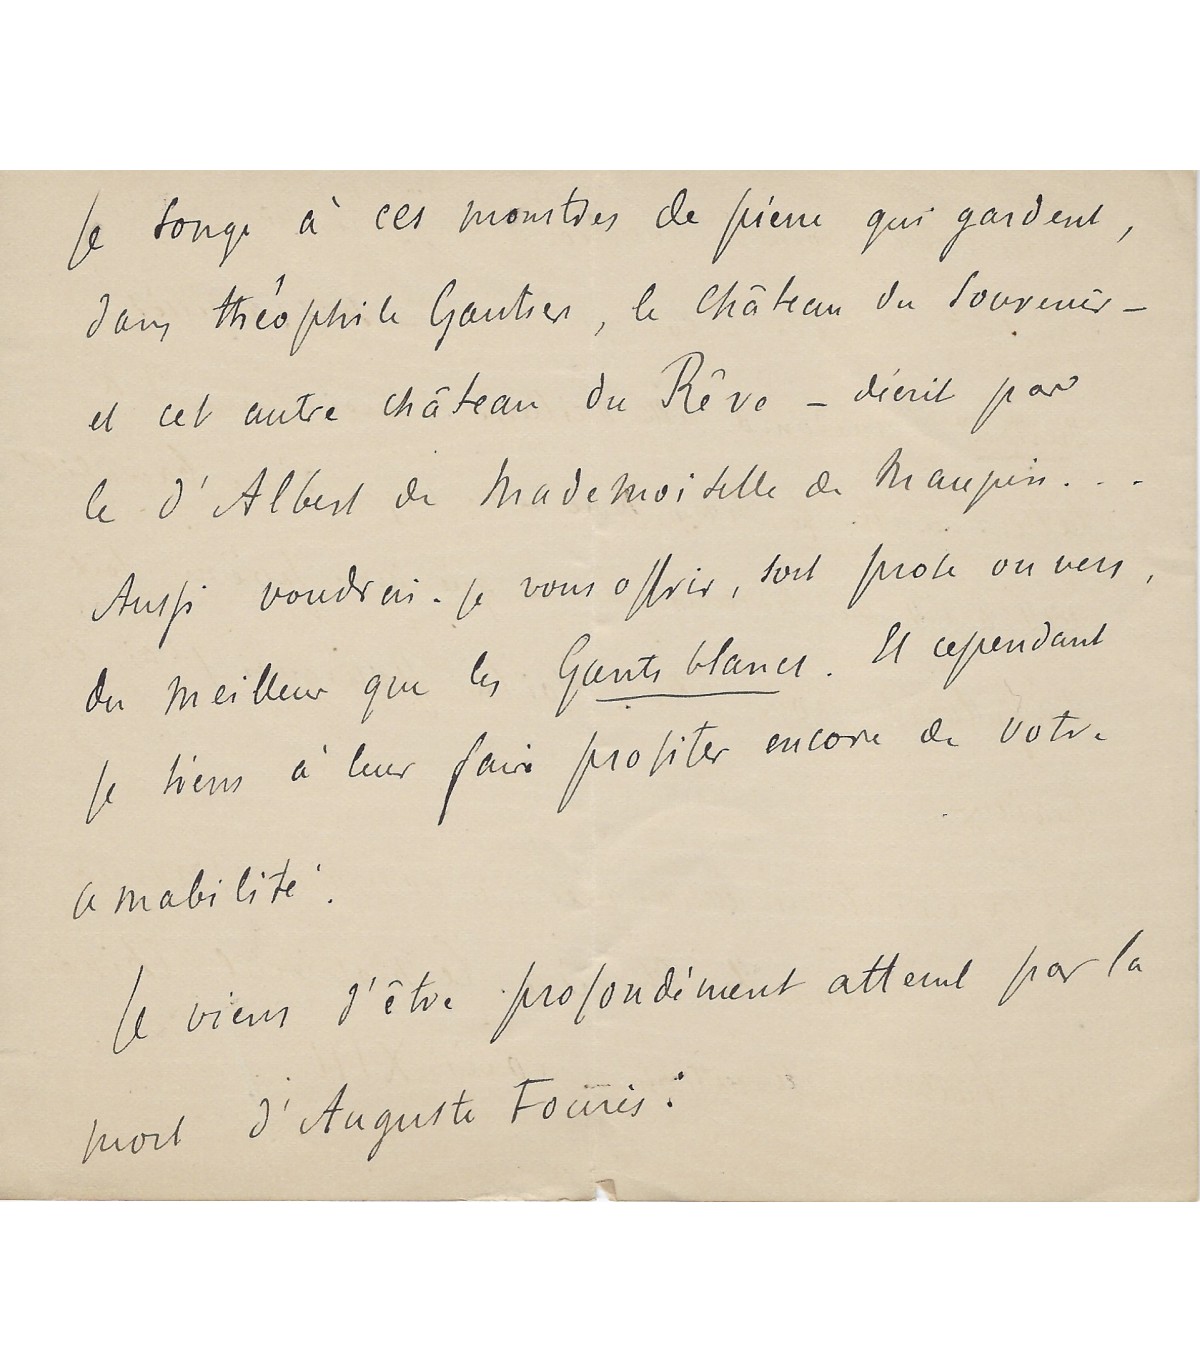 Je songe à ces monstres de pierre qui gardent,
dans Théophile Gautier, le Château du Souvenir –
et cet autre château du Rêve – décrit par
le d'Albert de Mademoiselle de Maupin...
Aussi voudrais-je vous offrir, soit prose ou vers,
du meilleur que les Gants blancs. Et cependant
je tiens à leur faire profiter encore de votre
amabilité.
Je viens d'être profondément atteint par la
mort d'Auguste Fourès :